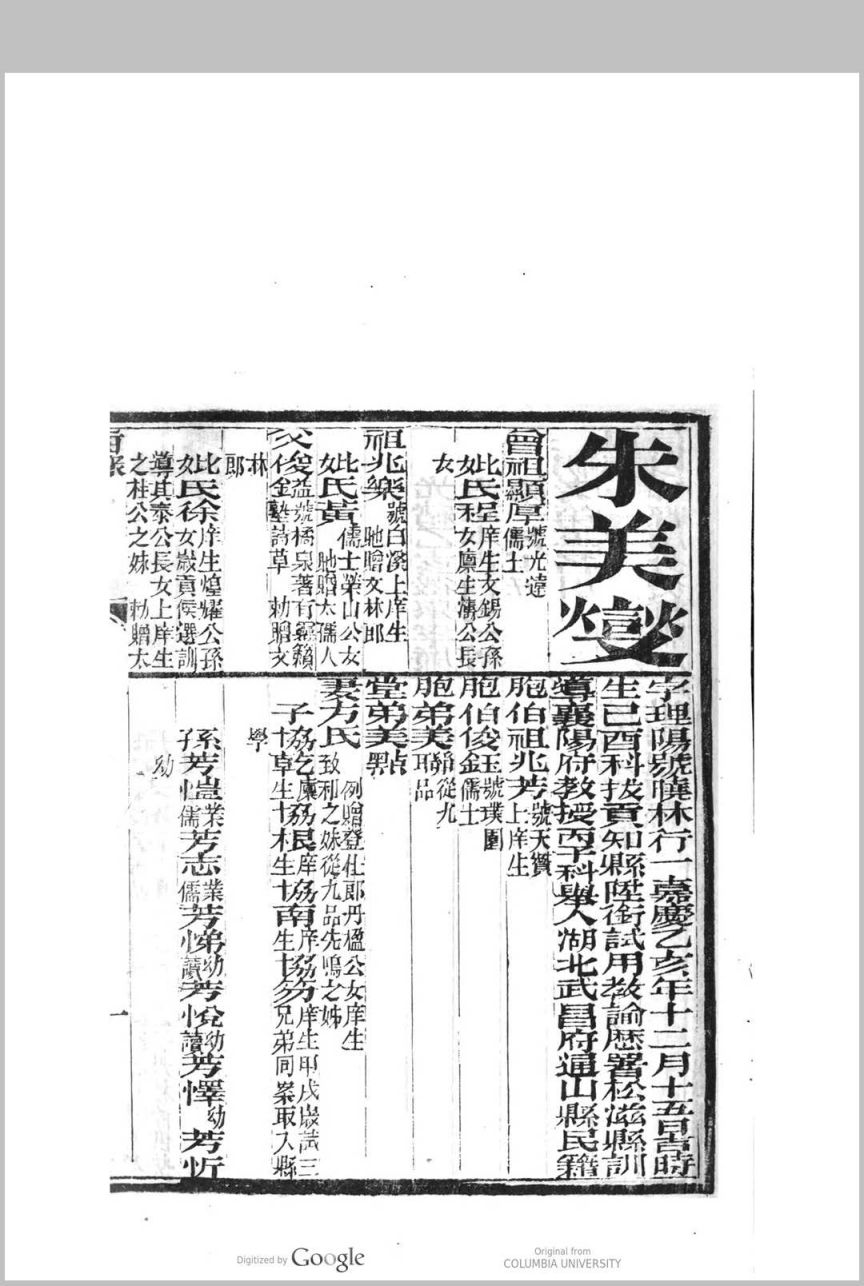 朱美燮
曾祖顯厚號光遠儒士
妣氏程庠生文錫公孫女廩生濤公長女
祖兆樂號白溪上庠生馳贈文林郎
妣氏黃儒士榮山公女馳贈太孺人
父俊金益號橘泉著有籟塾詩草 勅贈文林郎
妣氏徐庠生煌耀公孫女歲貢侯選訓導其泰公長女上庠生之柱公之妹 勅贈太
字理陽號曉林行一嘉慶乙亥年十二月十五日吉時
生己酉科拔貢知縣陞銜試用教諭歷署松滋縣訓
導襄陽府教授丙子科舉人湖北武昌府通山縣民籍
胞伯祖兆芳號天爵上庠生
胞伯俊玉號璞圃
胞伯俊金儒士
胞弟美從九品
堂弟美點
妻方氏例贈登仕郎丹楹公女庠生致和之妹從九品先鳴之姊
子庠生甲戌歲試三兄弟同案取入縣學
孫芳愷業儒芳志業儒芳悌幼讀芳悅幼讀芳懌幼芳忻幼
一
Digitized by Google
Original from
COLUMBIA UNIVERSITY